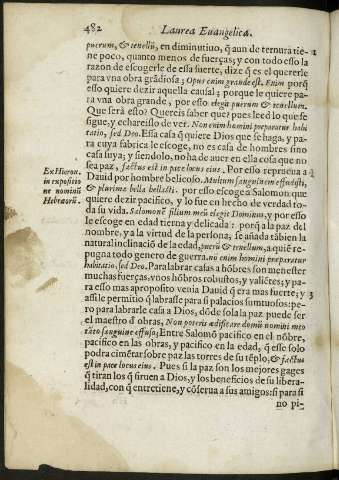 482 Laurea Euangelica.
puerum, & tenellũ, en diminutiuo, q̃ aun de ternura tie-
ne poco, quanto menos de fuerças; y con todo esso la
razon de escogerle de essa suerte, dize q̃ es el quererle
para vna obra grãdiosa; Opus enim grande est. Enim porq̃
esso quiere dezir aquella causal; porque le quiere pa-
ra vna obra grande, por esso elegit puerum & tenellum.
Que será esto? Quereis saber que? pues leed lo que se
sigue, y echareislo de ver. Non enim homini præparatur habi
tatio, sed Deo. Essa casa q̃ quiere Dios que se haga, y pa-
ra cuya fabrica le escoge, no es casa de hombres sino
casa suya; y siendolo, no ha de auer en ella cosa que no
sea paz, factus est in pace locus eius. Por esso reprueua a
Dauid por hombre belicoso, Multum sanguinem effudisti,
& plurima bella bellasti. por esso escoge a Salomon que
quiere dezir pacifico, y lo fue en hecho de verdad to-
da su vida. Salomonẽ filium meũ elegit Dominus, y por esso
le escoge en edad tierna y delicada: porq̃ a la paz del
nombre, y a la virtud de la persona, se añada tãbien la
natural inclinació de la edad, puerũ & tenellum, a quiẽ re-
pugna todo genero de guerra. no enim homini præparatur
habitatio, sed Deo. Para labrar casas a hõbres son menester
muchas fuerças, vnos hõbros robustos, y valiẽtes; y pa-
ra esso mas aproposito venia Dauid q̃ era mas fuerte; y
assi le permitio q̃ labrasse para si palacios sumtuosos: pe-
ro para labrarle casa a Dios, dõde sola la paz puede ser
el maestro d̃ obras, Non poteris ædificare domũ nomini meo
tãto sanguine effuso; Entre Salomõ pacifico en el nõbre,
pacifico en las obras, y pacifico en la edad, q̃ esse solo
podra cimẽtar sobre paz las torres de su tẽplo, & factus
est in pace locus eius. Pues si la paz son los mejores gages
q̃ tiran los q̃ siruen a Dios, y los beneficios de su libera-
lidad, con q̃ entretiene, y cõserua a sus amigos: si para si
no pi-
Ex Hieron.
in expositio
ne nominũ
Hebræorũ.
3